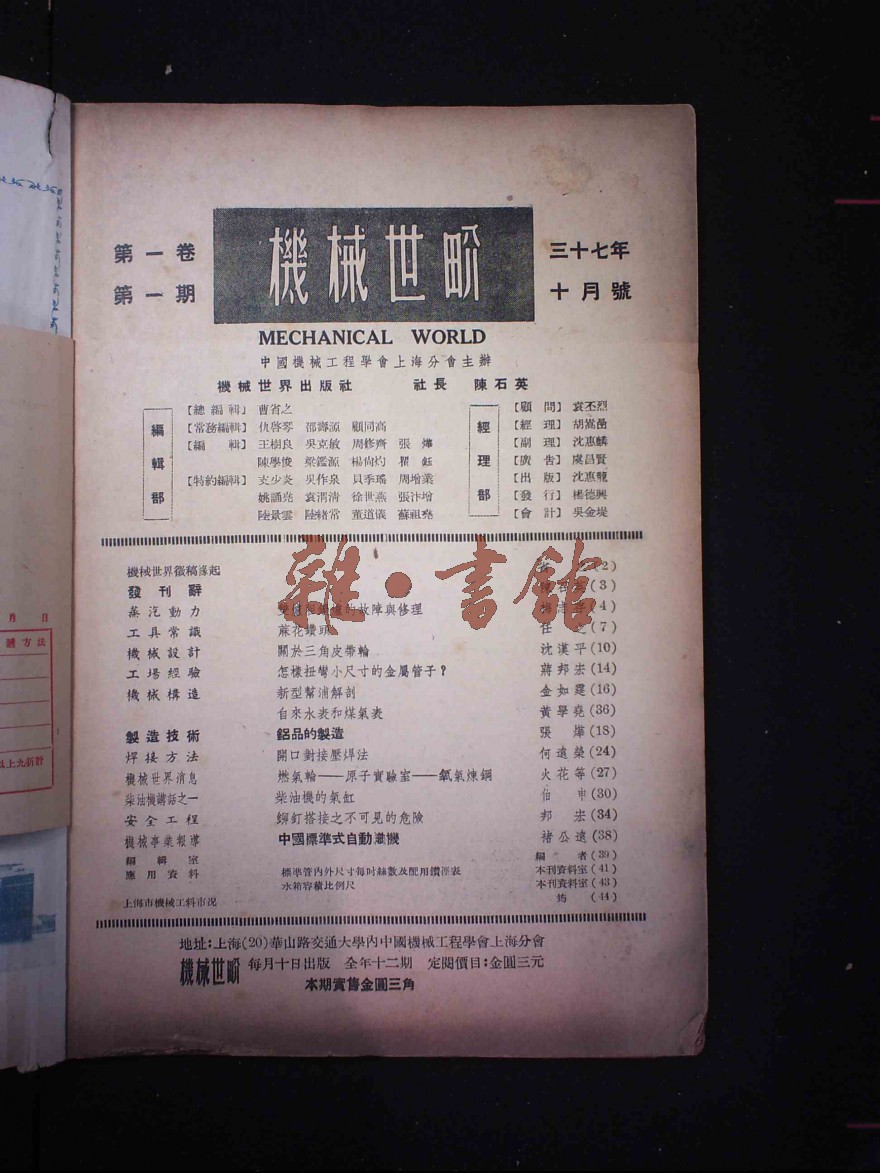 第一卷
第一期
機械世界
三十七年
十月號
MECHANICAL WORLD
中國機械工程學會上海分會主辦
機械世界出版社 社長 陳石英
編輯部
［總編輯］ 曹省之
［常務編輯］ 仇啓琴 邵壽源 顧同高
［編輯］ 王樹良 吳克敏 周修齊 張燁
陳學俊 梁鑑源 楊尙灼 瞿鈺
［特約編輯］ 支少炎 吳作泉 貝季瑤 周增業
姚誦堯 袁渭清 徐世燕 張汴增
陸景雲 陸緒常 董道儀 蘇祖堯
經理部
［顧問］ 袁丕烈
［經理］ 胡嵩嵒
［副理］ 沈惠麟
［廣告］ 虞昌賢
［出版］ 沈惠龍
［發行］ 楊德興
［會計］ 吳金堤
機械世界徵稿緣起 (2)
發刊辭 (3)
蒸汽動力 的故障與修理 (4)
工具常識 蔴花鑽頭 任之 (7)
機械設計 關於三角皮帶輪 沈漢平 (10)
工場經驗 怎樣扭彎小尺寸的金屬管子？ 蔣邦宏 (14)
機械構造 新型幫浦解剖 金如霆 (16)
自來水表和煤氣表 黃學堯 (36)
製造技術 鋁品的製造 張燁 (18)
焊接方法 開口對接壓焊法 何遠榮 (24)
機械世界消息 燃氣輪——原子實驗室——氧氣煉鋼 火花等 (27)
柴油機講話之一 柴油機的氣缸 伯申 (30)
安全工程 鉚釘搭接之不可見的危險 邦宏 (34)
機械事業報導 中國標準式自動織機 褚公遠 (38)
編輯室 編者 (39)
應用資料 標準管內外尺寸每吋絲數及配用鑽徑表 本刊資料室 (41)
水箱容積比例尺 本刊資料室 (43)
上海市機械工料市況 筠 (44)
雜·書館
地址：上海(20)華山路交通大學內中國機械工程學會上海分會
機械世界 每月十日出版 全年十二期 定閱價目：金圓三元
本期實售金圓三角
月 日
遞方法
以上九折計